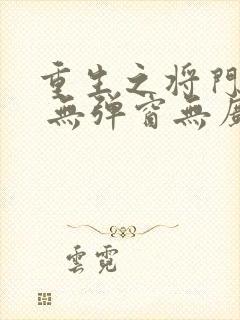 重生之将門
無弹窗無
雲霓